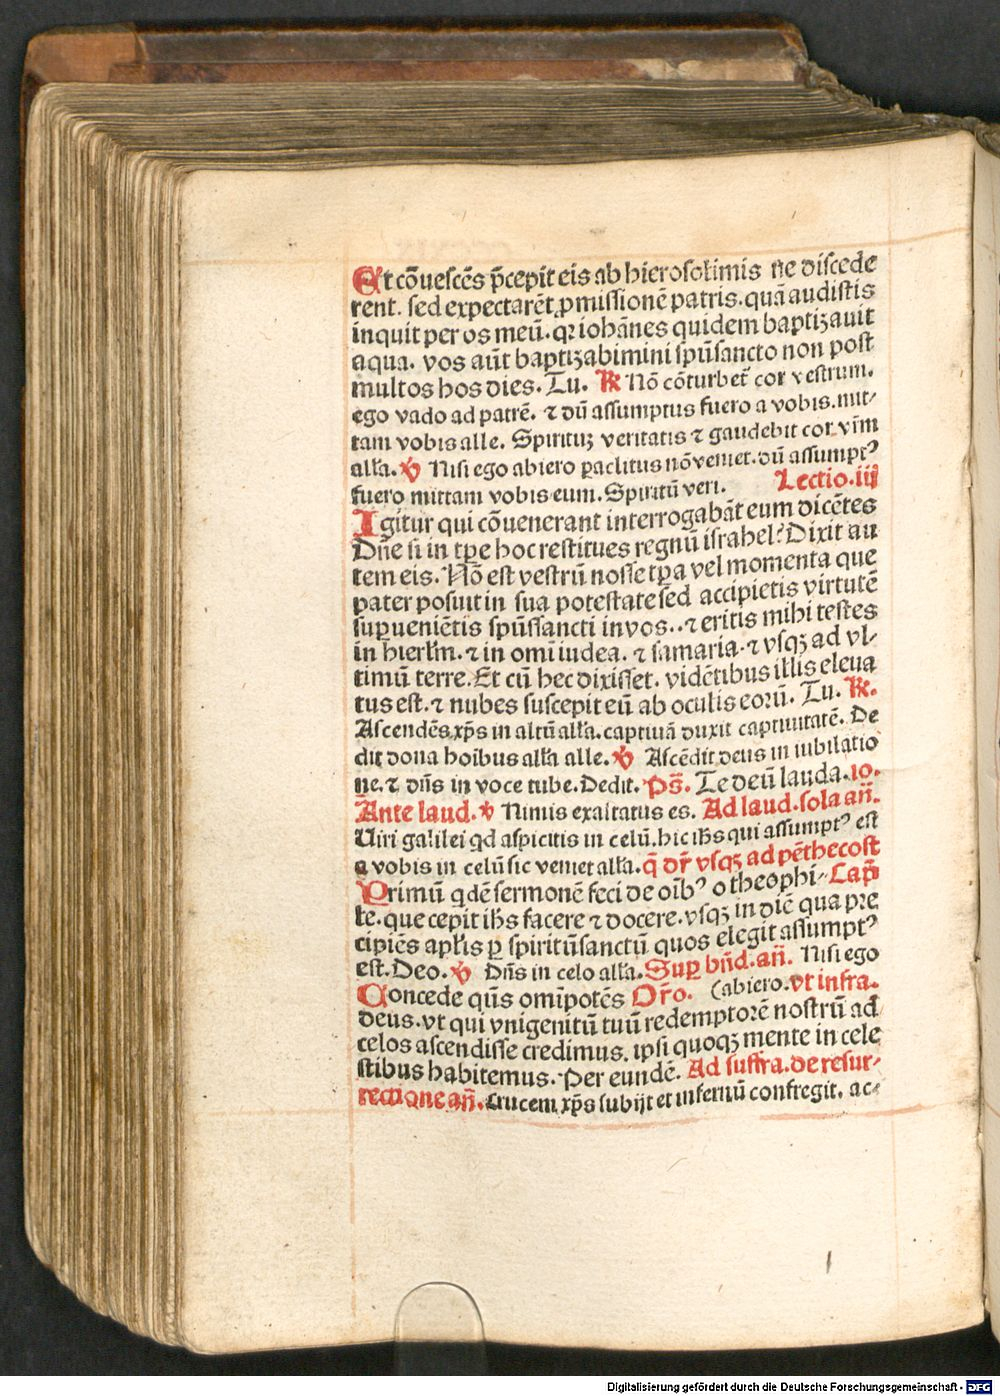 Et cōuescēs p̄cepit eis ab hierosolimis ne discede
rent. sed expectarēt ꝓmissionē patris. quā audistis
inquit per os meū. qꝛ iohānes quidem baptizauit
aqua. vos aūt baptizabimini spūsancto non post
multos hos dies. Tu. ℟ Nō cōturbet̄ cor vestrum.
ego vado ad patrē. ⁊ dū assumptus fuero a vobis. mit⸗
tam vobis alle. Spirituꝫ veritatis ⁊ gaudebit cor vr̄m
alƚa. ℣ Nisi ego abiero ꝑaclitus nō veniet. dū assumptꝰ
fuero mittam vobis eum. Spiritū veri. Lectio. iij
Igitur qui cōuenerant interrogabāt eum dicētes
Dn̄e si in tꝑe hoc restitues regnū israhel? Dixit au
tem eis. Nō est vestrū nosse tꝑa vel momenta que
pater posuit in sua potestate sed accipietis virtutē
suꝑueniētis spūssancti in vos.. ⁊ eritis mihi testes
in hierlm̄. ⁊ in omī iudea. ⁊ samaria. ⁊ vsqꝫ ad vl⸗
timū terre. Et cū hec dixisset. vidētibus illis eleua
tus est. ⁊ nubes suscepit eū ab oculis eorū. Tu. ℟.
Ascendēs xp̄s in altū alƚa. captiuā duxit captiuitatē. De
dit dona hoībus alƚa alle. ℣ Ascēdit deus in iubilatio
ne. ⁊ dn̄s in voce tube. Dedit. Ps̄. Te deū lauda. io.
Ante laud. ℣ Nimis exaltatus es. Ad laud. sola an̄.
Uiri galilei qd aspicitis in celū. hic ihs̄ qui assumptꝰ est
a vobis in celū sic veniet alƚa. q̄ dr̄ vsqꝫ ad pēthecost
Primū qdē sermonē feci de oībꝰ o theophi⸗ Cap̄
le. que cepit ihs̄ facere ⁊ docere. vsqꝫ in diē qua pre
cipiēs apƚis ꝑ spiritūsanctū quos elegit assumptꝰ
est. Deo. ℣ Dn̄s in celo alƚa. Suꝑ bn̄d. an̄. Nisi ego
Concede qūs omīpotēs Or̄o. (abiero. vt infra.
deus. vt qui vnigenitū tuū redemptorē nostrū ad
celos ascendisse credimus. ipsi quoqꝫ mente in cele
stibus habitemus. Per eundē. Ad suffra. de resur⸗
rectione an̄. Crucem xp̄s subijt et infernū confregit. ac⸗
Digitalisierung gefördert durch die Deutsche Forschungsgemeinschaft - DFG